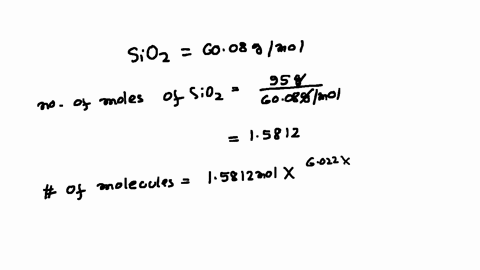 SiO2 = 60.08 g/mol
no. of moles of SiO2 = 95g / 60.08g/mol
= 1.5812
# of molecules = 1.5812 mol X 6.022 X